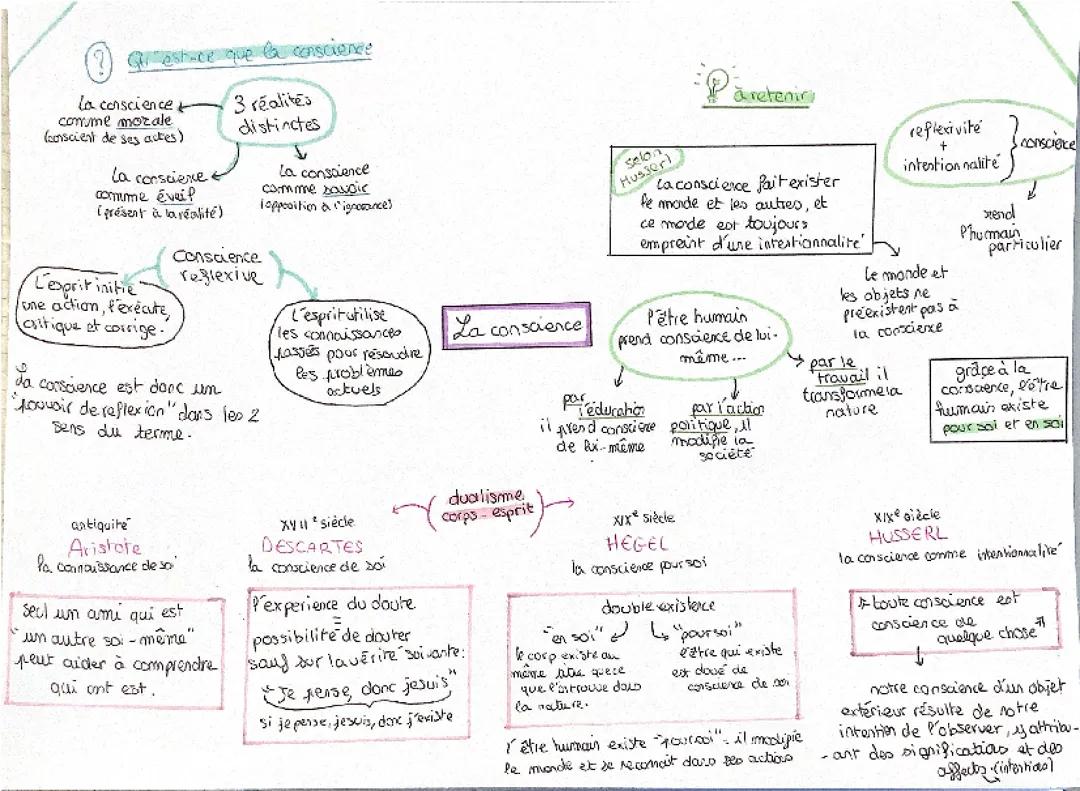 ? Qu'est-ce que la conscience
3 réalités
distinctes
La conscience
comme morale
(conscient de ses actes)
La conscience
comme éveil
(présent à la réalité)
La conscience
comme savoir
(opposition à l'ignorance)
Conscience
reflexive
L'esprit initie
une action, l'exécute,
critique et corrige.
L'esprit utilise
les connaissances
passés pour résoudre
les problèmes
actuels
La conscience est donc un
"pouvoir de reflexion" dans les 2
sens du terme.
La conscience
à retenir
selon
Husserl
La conscience fait exister
le monde et les autres, et
ce monde est toujours
empreint d'une intentionnalité
Le monde et
les objets ne
préexistent pas à
la conscience
reflexivité
+
intentionnalité
conscience
rend
l'humain
particulier
l'être humain
prend conscience de lui-
même...
par
l'éducation
il prend conscience
de lui-même
par l'action
politique, il
modifie la
société
par le
travail il
transforme la
nature
grâce à la
conscience, l'être
humain existe
pour soi et en soi
dualisme
corps-esprit
antiquité
Aristote
la connaissance de soi
seul un ami qui est
"un autre soi-même"
peut aider à comprendre
qui ont est.
XVIIe siècle
DESCARTES
la conscience de soi
l'experience du doute
=
possibilité de douter
sauf sur la vérité suivante:
"Je pense, donc je suis"
si je pense, je suis, donc j'existe
XIXe siècle
HEGEL
la conscience pour soi
double existence
"en soi"
le corp existe au
même titre que ce
que l'on trouve dans
la nature.
"pour soi"
l'être qui existe
est doué de
conscience de soi
l'être humain existe "pour soi" = il modifie
le monde et se reconnait dans ses actions
XIXe siècle
HUSSERL
la conscience comme intentionnalité
"toute conscience est
conscience de
quelque chose"
notre conscience d'un objet
extérieur résulte de notre
intention de l'observer, y attribu-
-ant des significations et des
affects. (intentions)